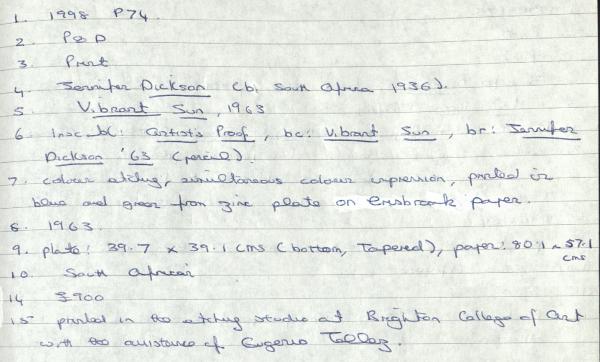 1. 1998 P74.
2. P&D
3. Print
4. Jennifer Dickson (b. South Africa 1936).
5 Vibrant Sun, 1963
6. Insc. bl: Artist's Proof, bc: Vibrant Sun, br: Jennifer
Dickson '63 (pencil).
7. colour etching, simultaneous colour impression, printed in
blue and green from zinc plate on paper.
8. 1963.
9. plate: 39.7 x 39.1 cms (bottom, tapered), paper: 80.1 x 57.1
cms
10. South African
14 £900
15 printed in the etching studio at Brighton College of Art
with the assistance of Eugenio Tellez.